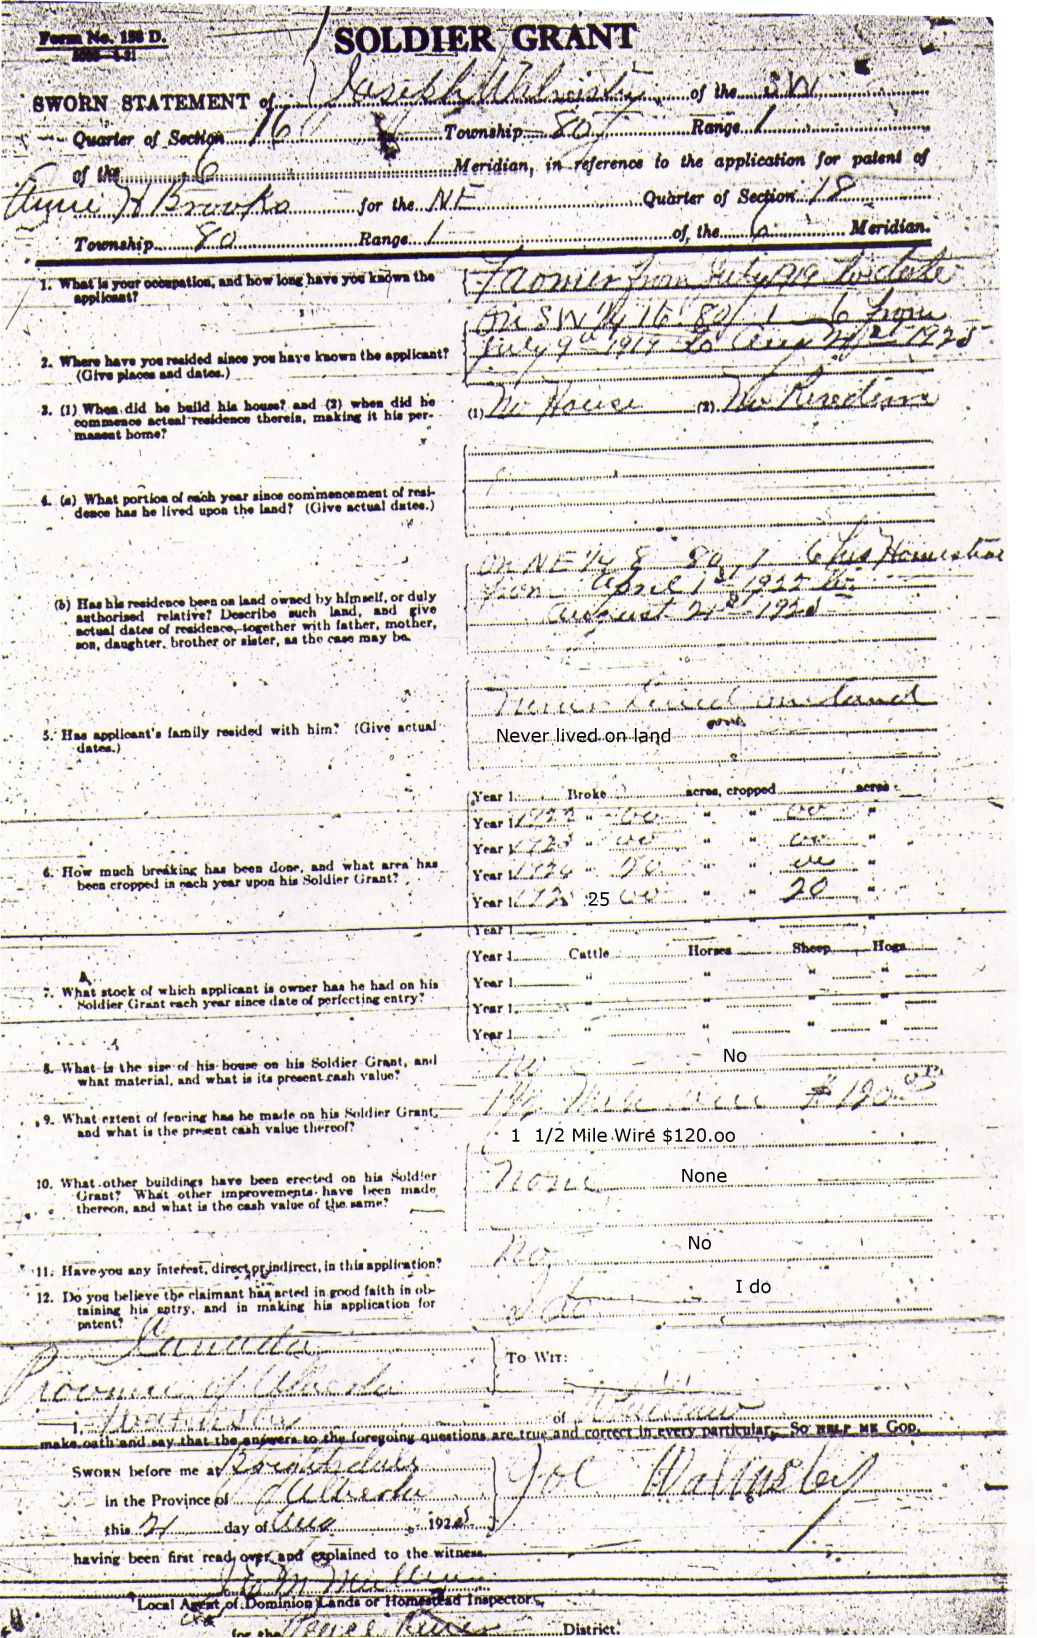 Form No. 198 D.
SOLDIER GRANT
SWORN STATEMENT of Joseph of the SW
Quarter of Section 16 Township 80 Range 1
of the 6 Meridian, in reference to the application for patent of
Annie H Brooks for the NE Quarter of Section 18
Township 80 Range 1 of the 6 Meridian.
1. What is your occupation, and how long have you known the
applicant?
Farmer from July 1919 to date
2. Where have you resided since you have known the applicant?
(Give places and dates.)
On SW 1/4 16 80 1 6 from
July 9th 1919 to Aug 21st 1925
3. (1) When did he build his house? and (2) when did he
commence actual residence therein, making it his per-
manent home?
(1) No House (2) No Residence
4. (a) What portion of each year since commencement of resi-
dence has he lived upon the land? (Give actual dates.)
(b) Has his residence been on land owned by himself, or duly
authorised relative? Describe such land, and give
actual dates of residence, together with father, mother,
son, daughter, brother or sister, as the case may be.
On NE 1/4 8 80 1 6 his Homestead
from April 1st 1922 to
August 21st 1925
5. Has applicant's family resided with him? (Give actual
dates.)
Never Lived on land
Never lived on land
6. How much breaking has been done, and what area has
been cropped in each year upon his Soldier Grant?
Year 1 Broke acres, cropped acres
Year 1922 " 00 " " 00 "
Year 1923 " 00 " " 00 "
Year 192 " 20 " " 00 "
Year 1925 25 00 " " 20 "
Year 1
7. What stock of which applicant is owner has he had on his
Soldier Grant each year since date of perfecting entry?
Year 1 Cattle Horses Sheep Hogs
Year 1 " " " "
Year 1 " " " "
Year 1 " " " "
8. What is the size of his house on his Soldier Grant, and
what material, and what is its present cash value?
No
No
9. What extent of fencing has he made on his Soldier Grant,
and what is the present cash value thereof?
1 1/2 Mile wire $120.00
1 1/2 Mile Wire $120.oo
10. What other buildings have been erected on his Soldier
Grant? What other improvements have been made
thereon, and what is the cash value of the same?
None
None
11. Have you any interest, direct or indirect, in this application?
No
No
12. Do you believe the claimant has acted in good faith in ob-
taining his entry, and in making his application for
patent?
I do
I do
Canada
Province of Alberta
TO WIT:
I, of
make oath and say that the answers to the foregoing questions are true and correct in every particular, SO HELP ME GOD.
SWORN before me at
in the Province of Alberta
this 21 day of Aug 1925
Joe Walmsley
having been first read over and explained to the witness.
Local Agent of Dominion Lands or Homestead Inspector
for the Peace River District.